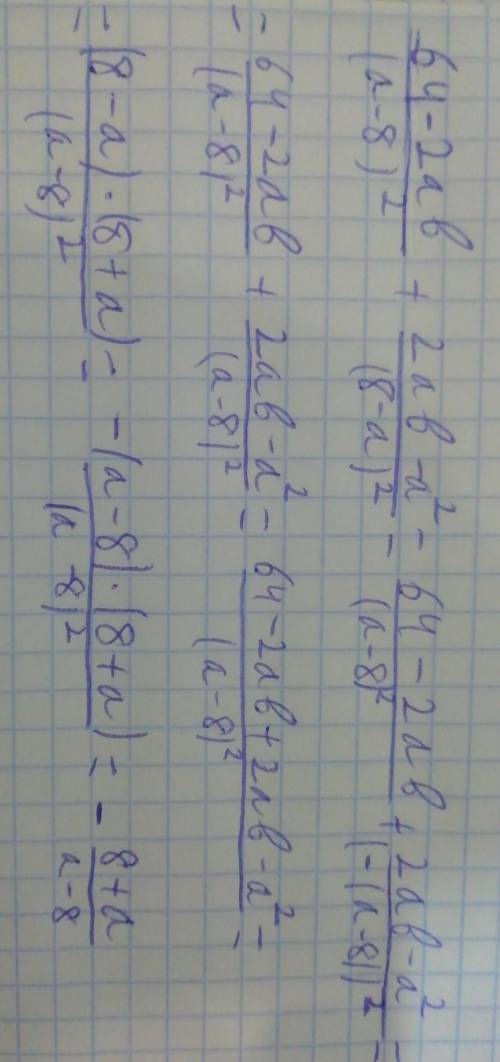 \frac{64-2ab}{(a-8)^2} + \frac{2ab-a^2}{(8-a)^2} = \frac{64-2ab}{(a-8)^2} + \frac{2ab-a^2}{(-(a-8))^2} =
= \frac{64-2ab}{(a-8)^2} + \frac{2ab-a^2}{(a-8)^2} = \frac{64-2ab+2ab-a^2}{(a-8)^2} =
= \frac{(8-a)·(8+a)}{(a-8)^2} = \frac{-(a-8)·(8+a)}{(a-8)^2} = -\frac{8+a}{a-8}